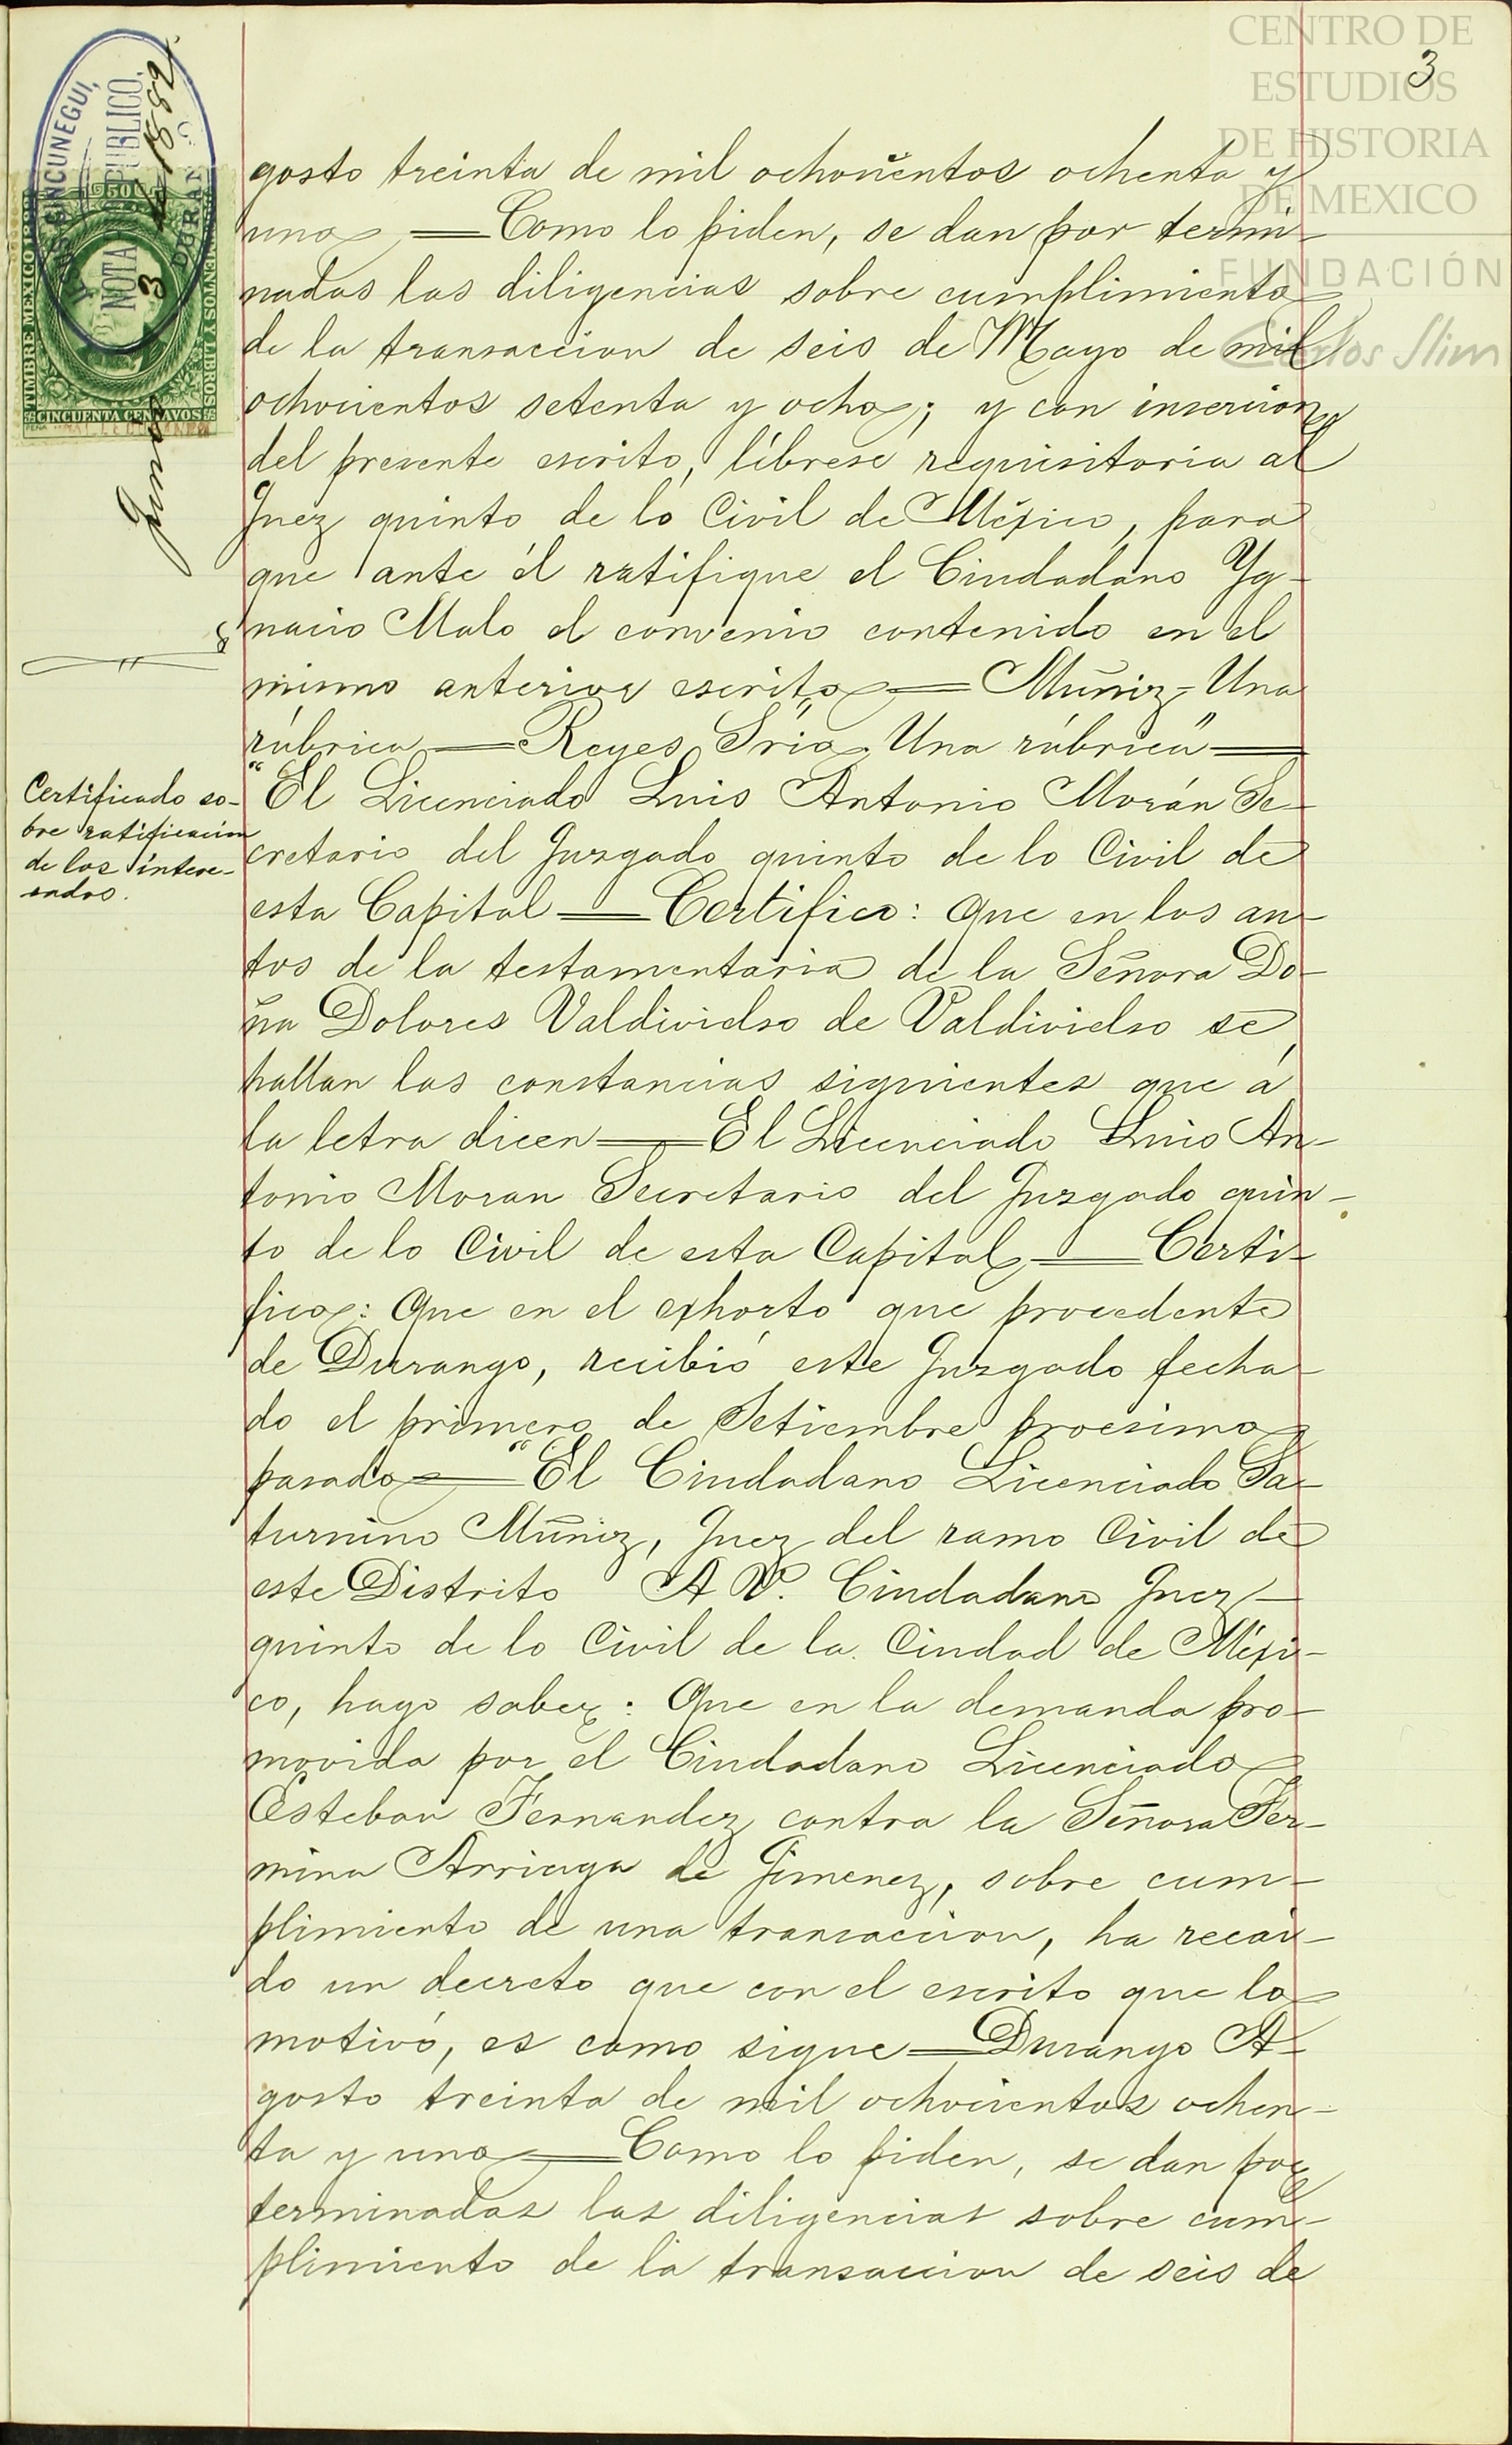 CENTRO DE
ESTUDIOS
DE HISTORIA
DE MEXICO
FUNDACIÓN
Carlos Slim
3
NOTARIO PUBLICO.
TIMBRE MEXICO
CINCUENTA CENTAVOS
Junio 3 de 1882.
gosto treinta de mil ochocientos ochenta y
uno — Como lo piden, se dan por termi-
nadas las diligencias sobre cumplimiento
de la transaccion de seis de Mayo de mil
ochocientos setenta y ocho; y con insercion
del presente escrito, líbrese requisitoria al
Juez quinto de lo Civil de México, para
que ante él ratifique el Ciudadano Yg-
nacio Malo el convenio contenido en el
mismo anterior escrito — Muñiz - Una
rúbrica — Reyes, Srio. Una rúbrica" —
Certificado so-
bre ratificacion
de los intere-
sados.
"El Licenciado Luis Antonio Morán Se-
cretario del Juzgado quinto de lo Civil de
esta Capital — Certifico: Que en los au-
tos de la testamentaria de la Señora Do-
ña Dolores Valdivielso de Valdivielso se
hallan las constancias siguientes que á
la letra dicen — El Licenciado Luis An-
tonio Moran Secretario del Juzgado quin-
to de lo Civil de esta Capital — Certi-
fico: Que en el exhorto que procedente
de Durango, recibió este Juzgado fecha-
do el primero de Setiembre procsimo
pasado — "El Ciudadano Licenciado Sa-
turnino Muñiz, Juez del ramo Civil de
este Distrito A V. Ciudadano Juez
quinto de lo Civil de la Ciudad de Méxi-
co, hago saber: Que en la demanda pro-
movida por el Ciudadano Licenciado
Esteban Fernandez contra la Señora Fer-
mina Arriaga de Jimenez, sobre cum-
plimiento de una transaccion, ha recai-
do un decreto que con el escrito que lo
motivó, es como sigue — Durango A-
gosto treinta de mil ochocientos ochen-
ta y uno — Como lo piden, se dan por
terminadas las diligencias sobre cum-
plimiento de la transaccion de seis de